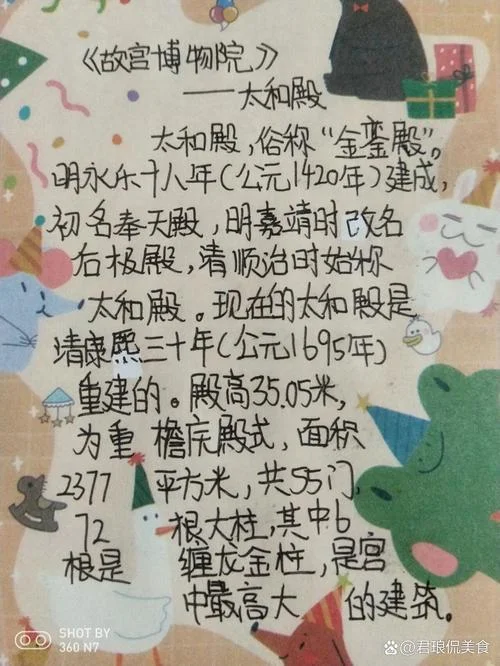 《故宫博物院》
——太和殿
太和殿，俗称“金銮殿”。
明永乐十八年（公元1420年）建成，
初名奉天殿，明嘉靖时改名
后极殿，清顺治时始称
太和殿。现在的太和殿是
清康熙三十年（公元1695年）
重建的。殿高35.05米，
为重 檐庑殿式，面积
2377 平方米，共55门，
72 根大柱，其中6
根是 缠龙金柱，是宫
中最高大 的建筑。
SHOT BY
360 N7
@君琅侃美食